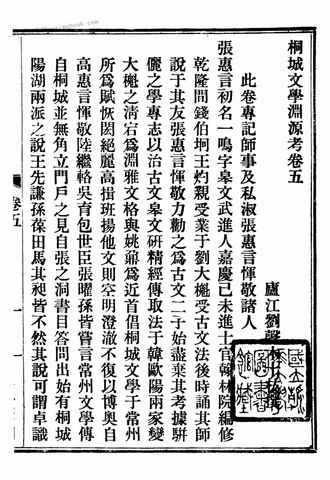 桐城文學淵源考卷五
廬江劉聲木十枝撰
此卷專記師事及私淑張惠言惲敬諸人
張惠言初名一鳴字皋文武進人嘉慶己未進士官翰林院編修
乾隆間錢伯坰王灼親受業于劉大櫆受古文法後時誦其師
說于其友張惠言惲敬力勸之爲古文二子始盡棄其考據騈
儷之學專志以治古文皋文硏精經傳取法于韓歐陽兩家變
大櫆之淸宕爲淵雅文格與姚鼐爲近首倡桐城文學于常州
所爲賦恢閎絕麗高揖班揚他文則空明澄澈不復以博奧自
高惠言惲敬陸繼輅吳育包世臣張曜孫皆嘗言常州文學傳
自桐城並無角立門戶之見自張之洞書目答問出始有桐城
陽湖兩派之說王先謙孫葆田馬其昶皆不然其說可謂卓識
卷五
一